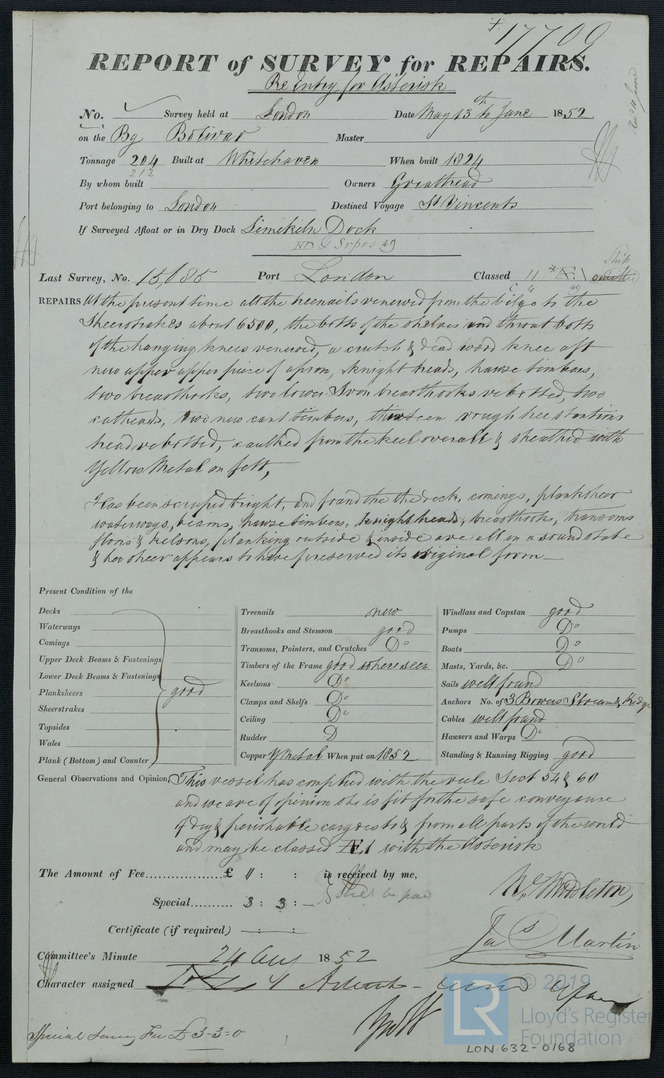 17709
REPORT of SURVEY for REPAIRS.
Re Entry for Asterisk
No. Survey held at London Date May 13th to June 1852
on the Bg Bolivar Master
Tonnage 204 Built at Whitehaven When built 1824
212
By whom built Owners Greathead
Port belonging to London Destined Voyage St Vincents
If Surveyed Afloat or in Dry Dock Limekiln Dock
49
Last Survey, No. 15185 Port London Classed 11 Æ1
REPAIRS At the present time all the treenails renewed from the bilge to the
Sheerstrakes about 6500, the bolts of the shelves and throat bolts
of the hanging knees renewed, a crutch & dead wood knee aft
new upper piece of apron, knight heads, hawse timbers,
two breasthooks, two lower Iron breasthooks rebolted, two
catheads, two new cant timbers, thirteen rough tree stantions
head rebolted, caulked from the keel overall & sheathed with
Yellow Metal on felt,
Has been scraped bright, and found the the deck, comings, planksheer
waterways, beams, hawse timbers, knight heads, breasthooks, transoms
floors & kelsons, planking outside & inside are all in a sound state
& her sheer appears to have preserved its original form
Present Condition of the
Decks
Waterways
Comings
Upper Deck Beams & Fastenings
Lower Deck Beams & Fastenings
Planksheers good
Sheerstrakes
Topsides
Wales
Plank (Bottom) and Counter
Treenails new
Breasthooks and Stemson good
Transoms, Pointers, and Crutches Do
Timbers of the Frame good where seen
Keelsons Do
Clamps and Shelfs Do
Ceiling Do
Rudder D
Copper Y Metal When put on 1852
Windlass and Capstan good
Pumps Do
Boats Do
Masts, Yards, &c. Do
Sails well found
Anchors No. of 3 Bowers Stream & Kedge
Cables well found
Hawsers and Warps Do
Standing & Running Rigging good
General Observations and Opinion, This vessel has complied with the rule Sect 54 & 60
and we are of opinion she is fit for the safe conveyance
of dry & perishable cargoes to & from all parts of the world
and may be classed Æ1 with the Asterisk
The Amount of Fee £ " : : is received by me,
Special 3 : 3 : — Will be paid
Wm Middleton,
Certificate (if required) — : — :
Jas Martin
Committee's Minute 24 Aug 1852
Character assigned
Special Survey Fee £3-3-0
© 2019
LR
Lloyd's Register
Foundation
LON 632-0168